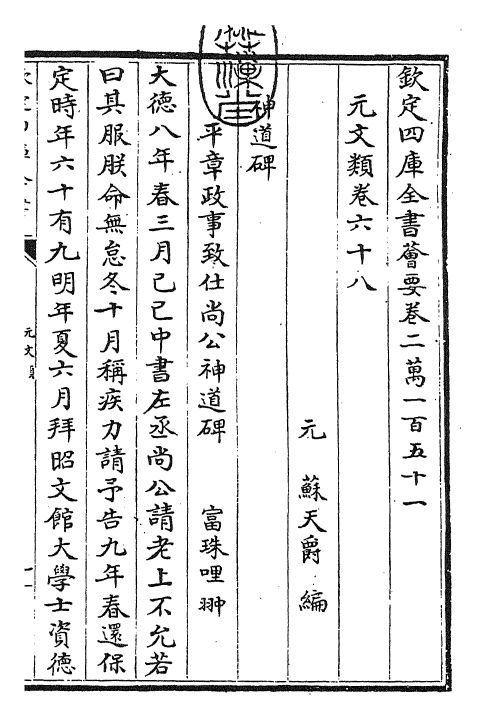 欽定四庫全書薈要卷二萬一百五十一
元文類卷六十八
元 蘇天爵 編
神道碑
平章政事致仕尚公神道碑 富珠哩翀
大德八年春三月己巳中書左丞尚公請老上不允若
曰其服朕命無怠冬十月稱疾力請予告九年春還保
定時年六十有九明年夏六月拜昭文館大學士資德
元文類